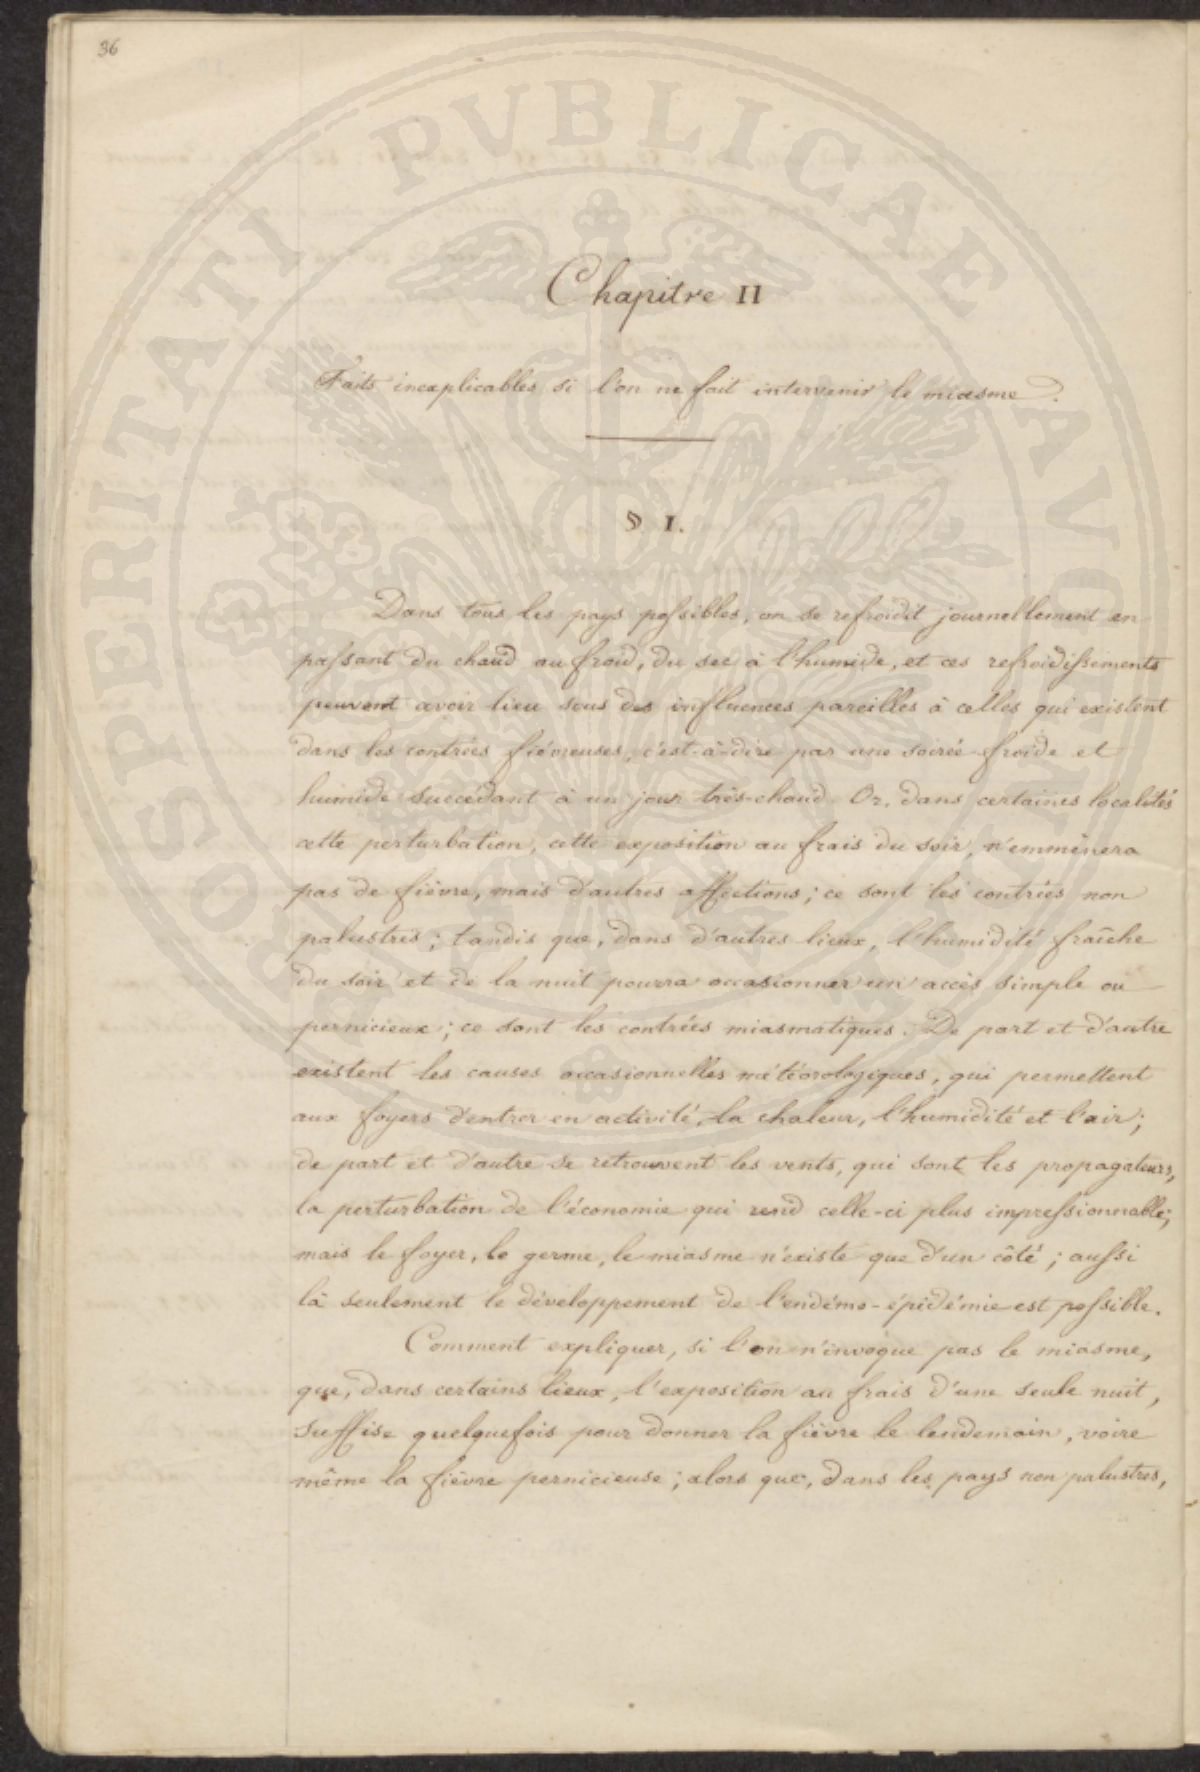 36
PROSPERITATI PVBLICAE AVGENDAE
Chapitre II
Faits inexplicables si l'on ne fait intervenir le miasme.
§ I.
Dans tous les pays possibles, on se refroidit journellement en
passant du chaud au froid, du sec à l'humide, et ces refroidissements
peuvent avoir lieu sous des influences pareilles à celles qui existent
dans les contrées fiévreuses, c'est-à-dire par une soirée froide et
humide succédant à un jour très-chaud. Or, dans certaines localités
cette perturbation, cette exposition au frais du soir, n'emmènera
pas de fièvre, mais d'autres affections; ce sont les contrées non
palustres; tandis que, dans d'autres lieux, l'humidité fraîche
du soir et de la nuit pourra occasionner un accès simple ou
pernicieux; ce sont les contrées miasmatiques. De part et d'autre
existent les causes occasionnelles météorologiques, qui permettent
aux foyers d'entrer en activité, la chaleur, l'humidité et l'air;
de part et d'autre se retrouvent les vents, qui sont les propagateurs,
la perturbation de l'économie qui rend celle-ci plus impressionnable;
mais le foyer, le germe, le miasme n'existe que d'un côté; aussi
là seulement le développement de l'endémo-épidémie est possible.
Comment expliquer, si l'on n'invoque pas le miasme,
que, dans certains lieux, l'exposition au frais d'une seule nuit,
suffise quelquefois pour donner la fièvre le lendemain, voire
même la fièvre pernicieuse; alors que, dans les pays non palustres,